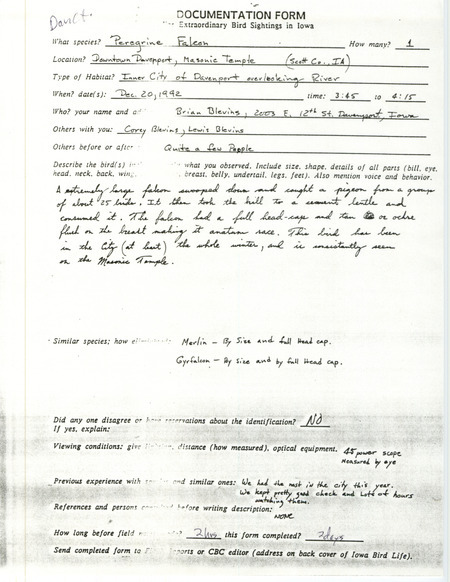 DOCUMENTATION FORM
Extraordinary Bird Sightings in Iowa
What species? Peregrine Falcon How many? 1
Location? Downtown Davenport, Masonic Temple (Scott Co., IA)
Type of Habitat? Inner City of Davenport overlooking River
When? date(s): Dec. 20, 1992 time: 3:45 to 4:15
Who? your name and Brian Blevins, 2003 E. 12th St. Davenport, Iowa
Others with you: Corey Blevins, Lewis Blevins
Others before or after Quite a few People
Describe the bird(s) what you observed. Include size, shape, details of all parts (bill, eye,
head, neck, back, wing, breast, belly, undertail, legs, feet). Also mention voice and behavior.
A extremely large falcon swooped down and caught a pigeon from a group
of about 25 birds. It then took the kill to a cement and
consumed it. The falcon had a full head-cap and tan or ochre
flush on the breast making it anatum race. This bird has been
in the City (at least) the whole winter, and is consistantly seen
on the Masonic Temple.
Similar species; how Merlin - By Size and full Head cap.
Gyrfalcon - By size and by full Head cap.
Did any one disagree or have reservations about the identification? NO
If yes, explain:
Viewing conditions: give distance (how measured), optical equipment. 45 power scope
Measured by eye
Previous experience with and similar ones: We had the nest in the city this year.
We kept pretty good check and Lots of hours
watching them.
References and persons before writing description:
NONE
How long before field 2 hrs this form completed? 2 days
Send completed form to or CBC editor (address on back cover of Iowa Bird Life).